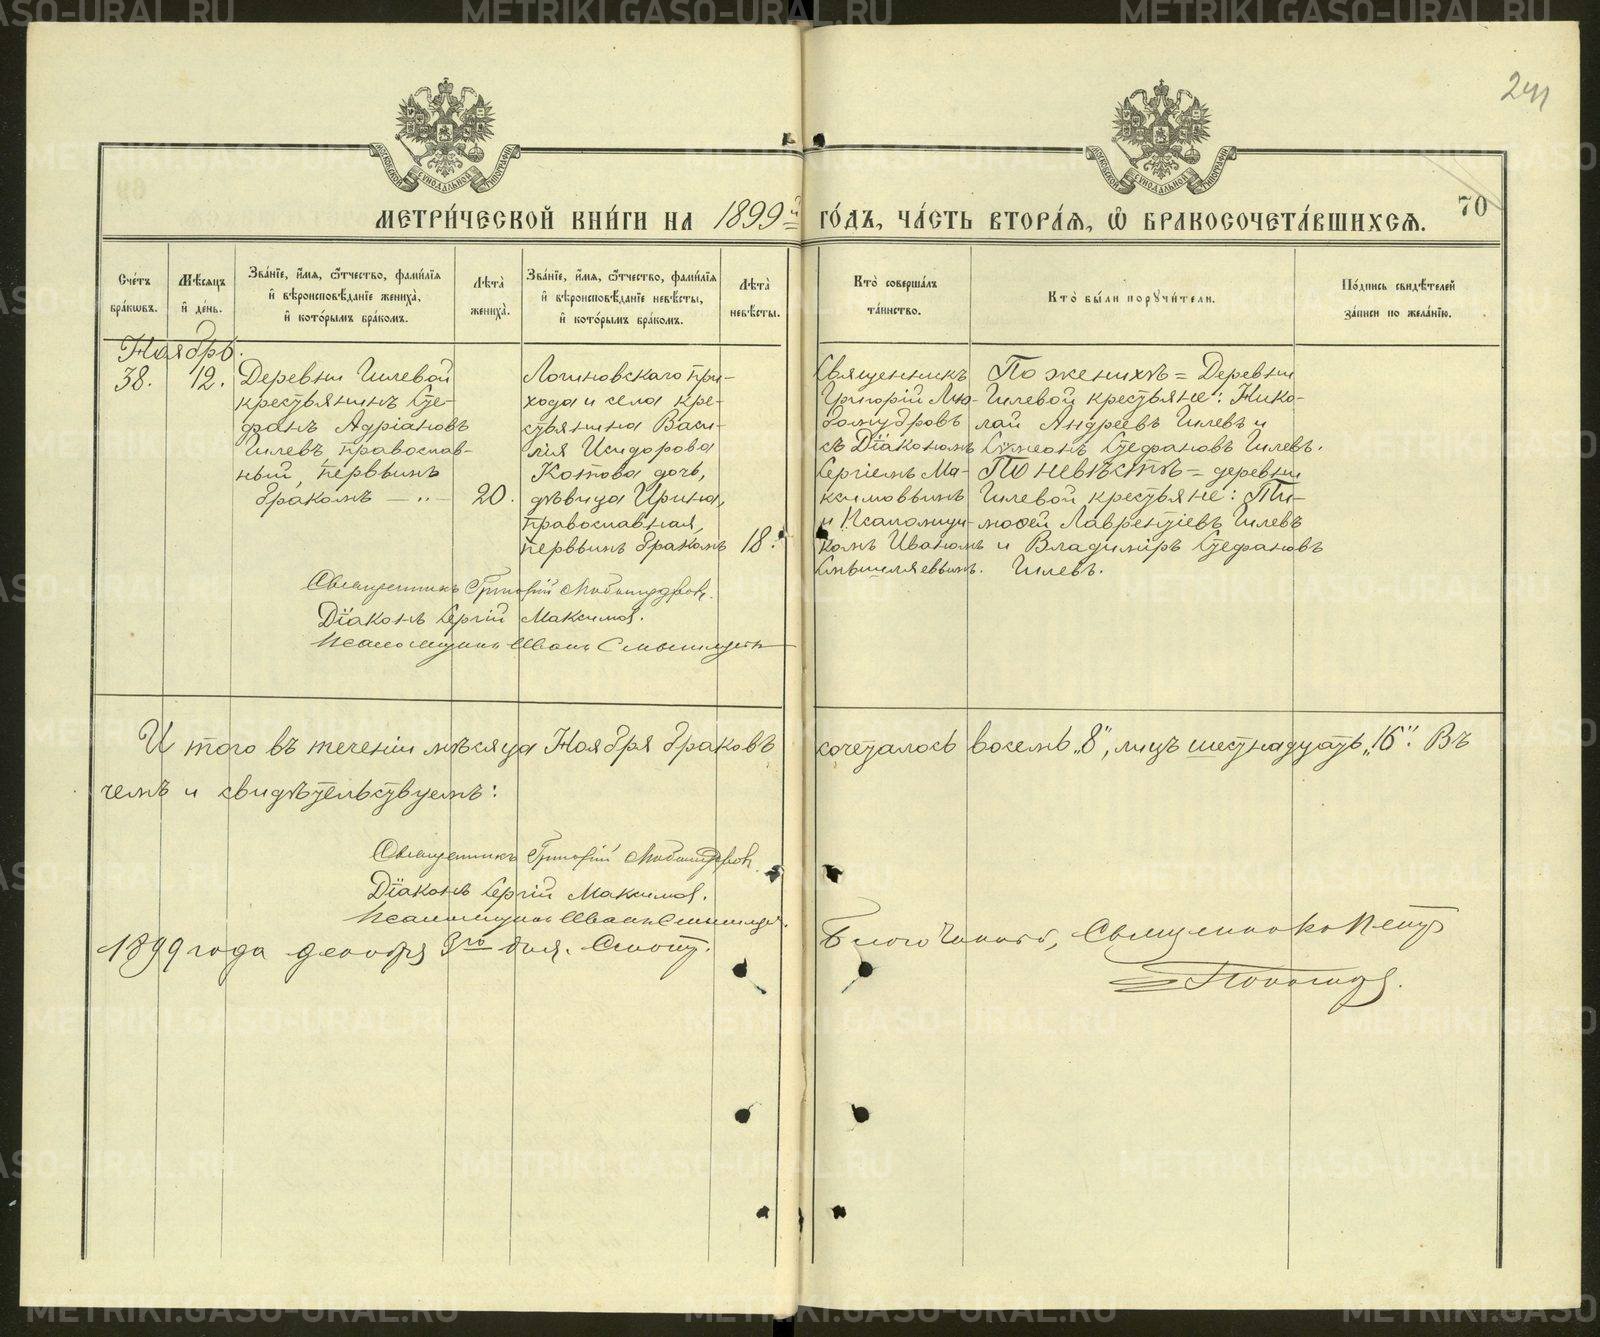 241
МОСКОВСКОЙ СѴНОДАЛЬНОЙ ТИПОГРАФІИ
МОСКОВСКОЙ СѴНОДАЛЬНОЙ ТИПОГРАФІИ
МЕТРИ́ЧЕСКОЙ КНИ́ГИ НА 1899й ГО́ДЪ, ЧА́СТЬ ВТОРА́Ѧ, Ѽ БРАКОСОЧЕТА́ВШИХСѦ. 70
Сче́тъ бра́кѡвъ.
Мѣ́сѧцъ и҆ де́нь.
Зва́нїе, и҆́мѧ, ѻ҆́тчество, фами́лїѧ и҆ вѣроисповѣ́данїе жениха̀, и҆ кото́рымъ бра́комъ.
Лѣ́та жениха̀.
Зва́нїе, и҆́мѧ, ѻ҆́тчество, фами́лїѧ и҆ вѣроисповѣ́данїе невѣ́сты, и҆ кото́рымъ бра́комъ.
Лѣ́та невѣ́сты.
Кто̀ соверша́лъ та́инство.
Кто̀ бы́ли порꙋчи́тели.
По́дпись свидѣ́телей за́писи по жела́нїю.
Ноябрь.
38.
12.
Деревни Гилевой
крестьянинъ Сте-
фанъ Адріановъ
Гилевъ, православ-
ный, первымъ
бракомъ — „ —
20.
Логиновскаго при-
хода и села кре-
стьянина Васи-
лія Исидорова
Котова дочь,
дѣвица Ирина,
православная,
первымъ бракомъ
18.
Священникъ
Григорій Лю-
бомудровъ
съ Діакономъ
Сергіемъ Ма-
ксимовымъ
и Псаломщи-
комъ Иваномъ
Смышляевымъ.
По женихѣ = Деревни
Гилевой крестьяне: Нико-
лай Андреевъ Гилевъ и
Сѵмеонъ Стефановъ Гилевъ.
По невѣстѣ = деревни
Гилевой крестьяне: Ти-
моѳей Лаврентіевъ Гилевъ
и Владиміръ Стефановъ
Гилевъ.
Священникъ Григорій Любомудровъ.
Діаконъ Сергій Максимов.
Псаломщикъ Иванъ Смышляевъ
Итого въ теченіи мѣсяца Ноября браковъ сочеталось восемь „8“, лицъ шестнадцать „16“. Въ
чемъ и свидѣтельствуемъ:
Священникъ Григорій Любомудровъ.
Діаконъ Сергій Максимов.
Псаломщикъ Иванъ Смышляев.
1899 года декабря 3го дня. Благочинный, Священникъ Петръ